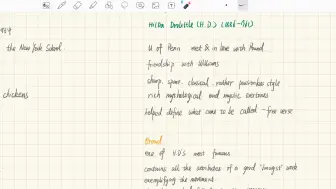 the New York School
chickens
Hilda Doolittle (H.D.) (1886-1961)
U of Penn met & in love with Pound
friendship with Williams
sharp, spare, classical, rather passionless style
rich mythological and mystic overtones
helped define what came to be called - free verse
Oread
one of H.D's most famous
contains all the attributes of a good 'Imagist' work
exemplifying the movement